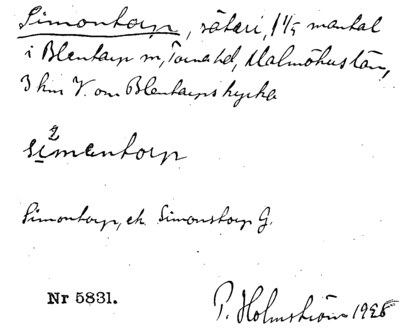 Simontorp, säteri, 1 1/5 mantal
i Blentarp sn, Torna hd, Malmöhus län,
3 km V. om Blentarps kyrka
simentorp
Simontorp, ek. Simonstorp G.
Nr 5831.
P. Holmström 1925